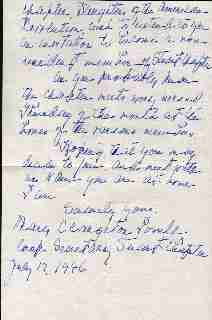 Chapter, Daughters of the American
Revolution, and to extend to you
an invitation to become a non-
resident member of Stuart Chapter
as you probably know
the Chapter meets every second
Thursday of the month at the
homes of the various members
Hoping that you may
decide to join and meet with
us when you are at home
I am
Sincerely yours,
Mary
Secretary Stuart Chapter
July 12, 1946